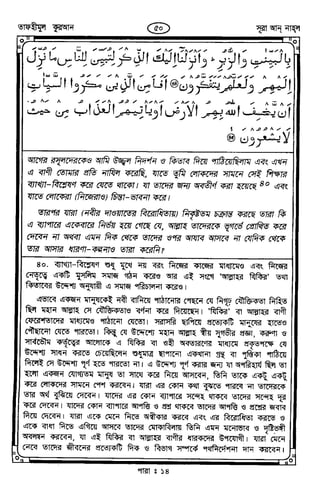 তাফহীমুল কুরআন
৫০
সূরা আন্ নাহল
بِالْبَيِّنٰتِ وَالزُّبُرِ ؕ وَاَنْزَلْنَاۤ اِلَيْكَ الذِّكْرَ لِتُبَيِّنَ لِلنَّاسِ مَا نُزِّلَ
اِلَيْهِمْ وَلَعَلَّهُمْ يَتَفَكَّرُوْنَ ۝ اَفَاَمِنَ الَّذِيْنَ مَكَرُوا السَّيِّاٰتِ
اَنْ يَّخْسِفَ اللّٰهُ بِهِمُ الْاَرْضَ اَوْ يَاْتِيَهُمُ الْعَذَابُ مِنْ حَيْثُ
لَا يَشْعُرُوْنَ ۝
আগের রসূলদেরকেও আমি উজ্জ্বল নিদর্শন ও কিতাব দিয়ে পাঠিয়েছিলাম এবং এখন
এ বাণী তোমার প্রতি নাযিল করেছি, যাতে তুমি লোকদের সামনে সেই শিক্ষার
ব্যাখ্যা-বিশ্লেষণ করে যেতে থাকো। যা তাদের জন্য অবতীর্ণ করা হয়েছে ৪০ এবং
যাতে লোকেরা (নিজেরাও) চিন্তা-ভাবনা করে।
তারপর যারা (নবীর দাওয়াতের বিরোধিতায়) নিকৃষ্টতম চক্রান্ত করছে তারা কি
এ ব্যাপারে একেবারে নির্ভয় হয়ে গেছে যে, আল্লাহ তাদেরকে ভূগর্ভে প্রোথিত করে
দেবেন না অথবা এমন দিক থেকে তাদের ওপর আযাব আসবে না যেদিক থেকে
তার আসার ধারণা-কল্পনাও তারা করেনি?
৪০. ব্যাখ্যা-বিশ্লেষণ শুধু মুখে নয় বরং নিজের কাজের মাধ্যমেও এবং নিজের
নেতৃত্বে একটি মুসলিম সমাজ গঠন করেও আর এই সংগে 'আল্লাহর যিকির' তথা
কিতাবের উদ্দেশ্য অনুযায়ী এ সমাজ পরিচালনা করেও।
এভাবে একজন মানুষকেই নবী বানিয়ে পাঠানোর পেছনে যে নিগূঢ় যৌক্তিকতা নিহিত
ছিল মহান আল্লাহ সে যৌক্তিকতাও বর্ণনা করে দিয়েছেন। 'যিকির' বা আল্লাহর বাণী
ফেরেশতাদের মাধ্যমেও পাঠানো যেতো। সরাসরি ছাপিয়ে প্রত্যেকটি মানুষের হাতেও
পৌঁছানো যেতে পারতো। কিন্তু যে উদ্দেশ্যে মহান আল্লাহ স্বীয় সুগভীর প্রজ্ঞা, করুণা ও
সার্বভৌম কর্তৃত্বের আলোকে এ যিকির বা ওহী অবতারণের মাধ্যমে প্রকৃতপক্ষে যে
উদ্দেশ্য সাধন করতে চেয়েছিলেন শুধুমাত্র ছাপানো একখানা গ্রন্থ বা পুস্তিকা পাঠিয়ে
দিলেই সে উদ্দেশ্য পূর্ণ হতে পারতো না। এ উদ্দেশ্য পূর্ণ করার জন্য যা অপরিহার্য ছিল তা
হলো একজন যোগ্যতম মানুষ তা সাথে করে নিয়ে আসবেন, তিনি তাকে একটু একটু
করে লোকদের সামনে পেশ করবেন। যারা এর কোন কথা বুঝতে পারবে না তাদেরকে
তার অর্থ বুঝিয়ে দেবেন। যাদের এর কোন ব্যাপারে সন্দেহ থাকবে তাদের সন্দেহ দূর
করে দেবেন। যাদের কোন ব্যাপারে আপত্তি ও প্রশ্ন থাকবে তাদের আপত্তি ও প্রশ্নের জবাব
দিয়ে দেবেন। যারা একে মেনে নিতে অস্বীকার করবে এবং এর বিরোধিতা করতে ও
একে বাধা দিতে এগিয়ে আসবে তাদের মোকাবিলায় তিনি এমন মনোভাব ও দৃষ্টিভঙ্গী
অবলম্বন করবেন, যা এই যিকির বা আল্লাহর বাণীর ধারকদের উপযোগী। যারা মেনে
নেবে তাদের জীবনের প্রত্যেকটি দিক ও বিভাগ সম্পর্কে পথনির্দেশনা দান করবেন।
পারা : ১৪